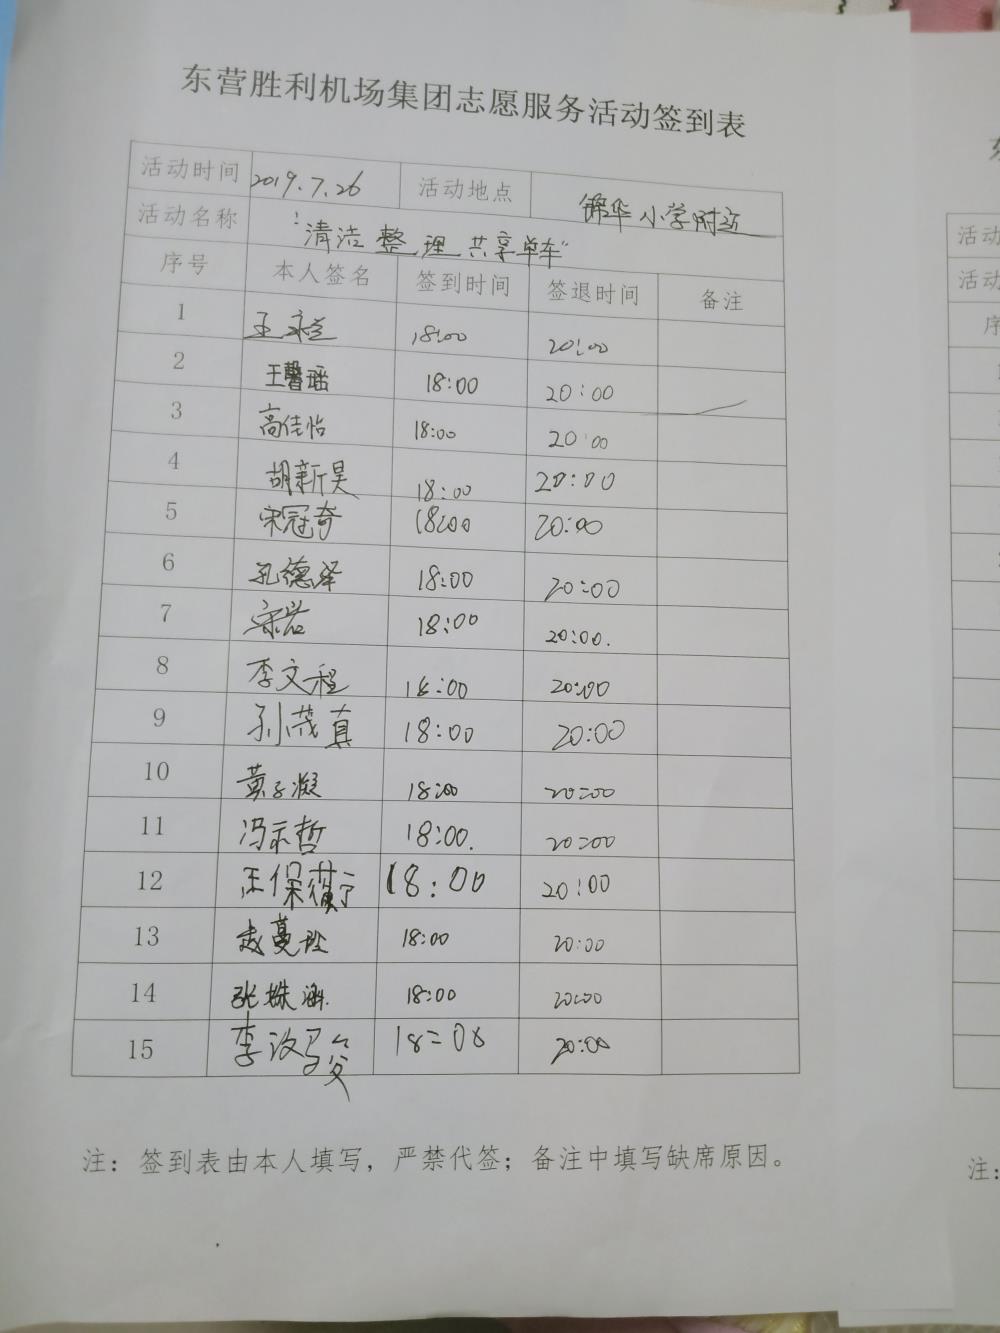 东营胜利机场集团志愿服务活动签到表
活动时间 2019.7.26 活动地点 锦华小学附近
活动名称 "清洁整理共享单车"
序号 本人签名 签到时间 签退时间 备注
1 王 18:00 20:00
2 王馨瑶 18:00 20:00
3 高佳怡 18:00 20:00
4 胡新昊 18:00 20:00
5 宋冠奇 18:00 20:00
6 孔德泽 18:00 20:00
7 宋岩 18:00 20:00.
8 李文程 18:00 20:00
9 孙茂真 18:00 20:00
10 黄子凝 18:00 20:00
11 冯示哲 18:00. 20:00
12 王保 18:00 20:00
13 赵蔓 18:00 20:00
14 张姝涵 18:00 20:00
15 李汶骏 18:00 20:00
注：签到表由本人填写，严禁代签；备注中填写缺席原因。
活动
活动
注：